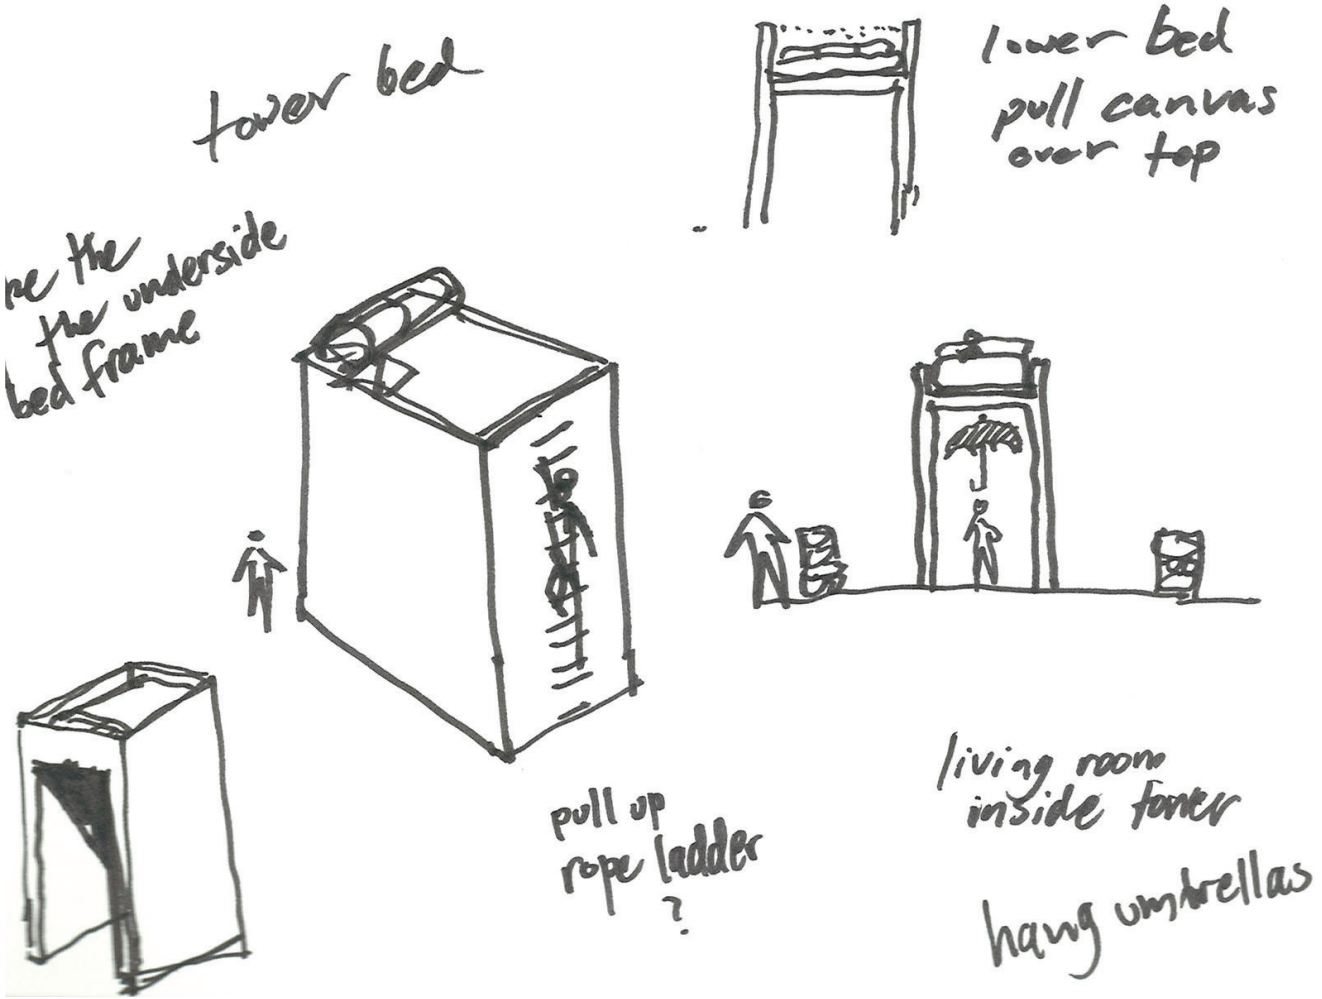 tower bed
lower bed
pull canvas
over top
the
the underside
bed frame
pull up
rope ladder
?
living room
inside tower
hang umbrellas